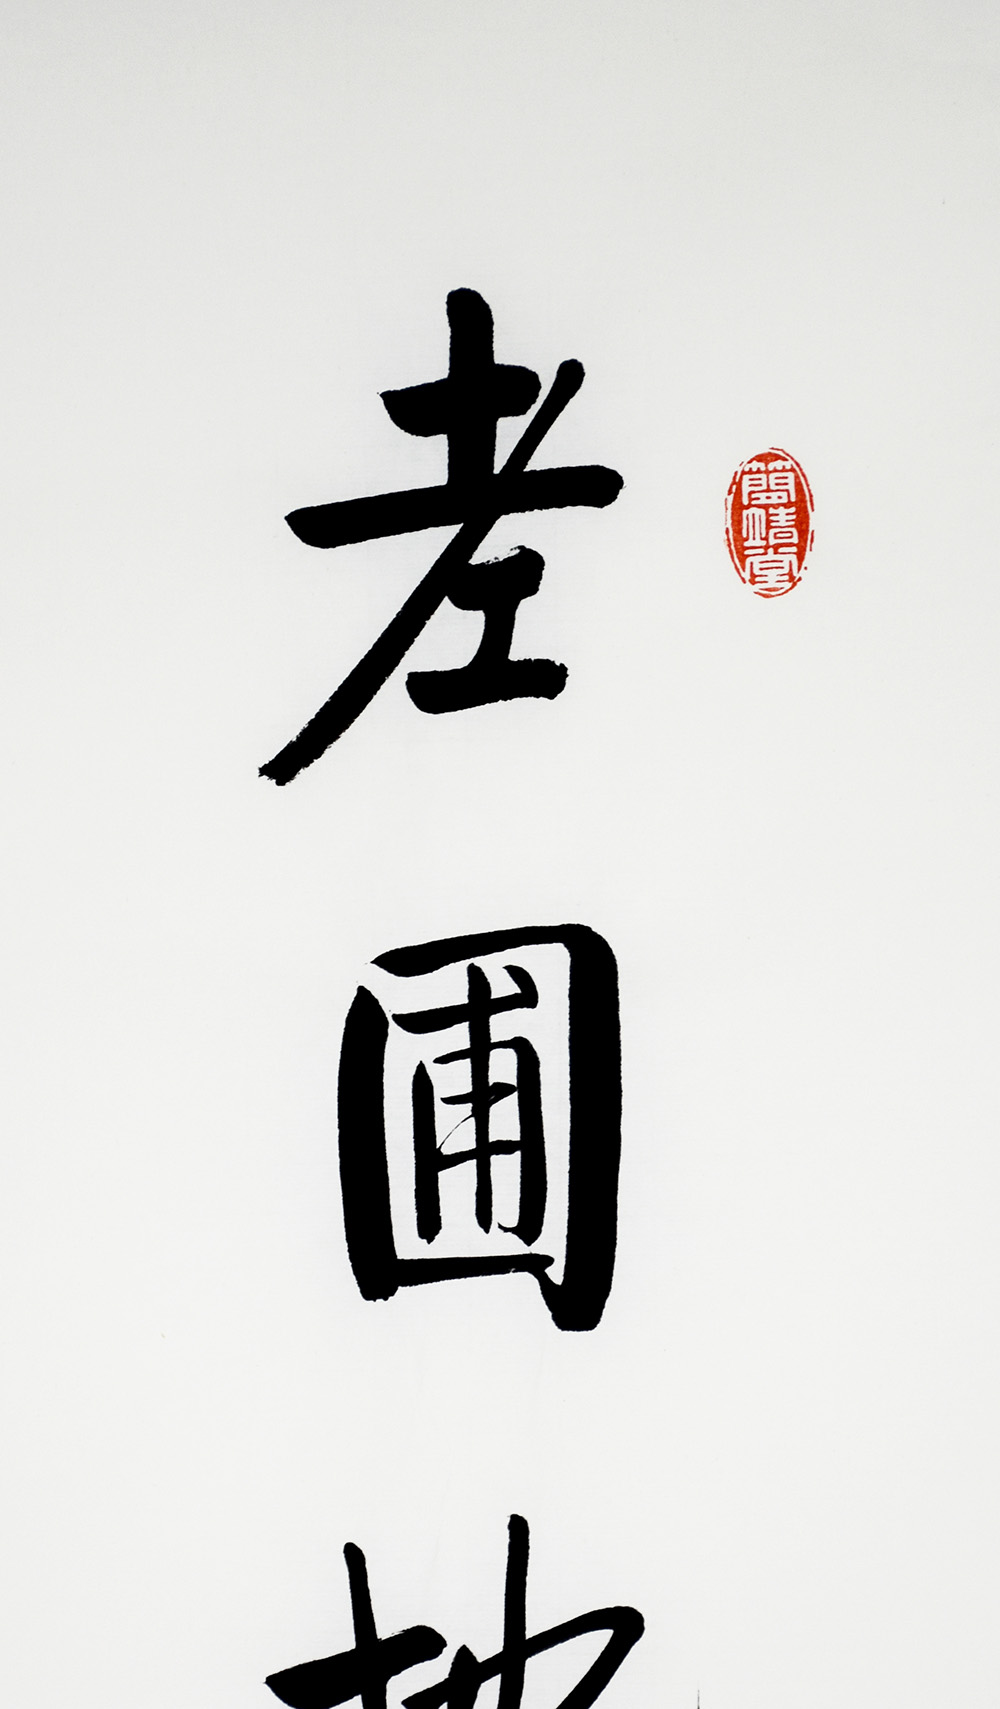 老圃地
簡靖堂